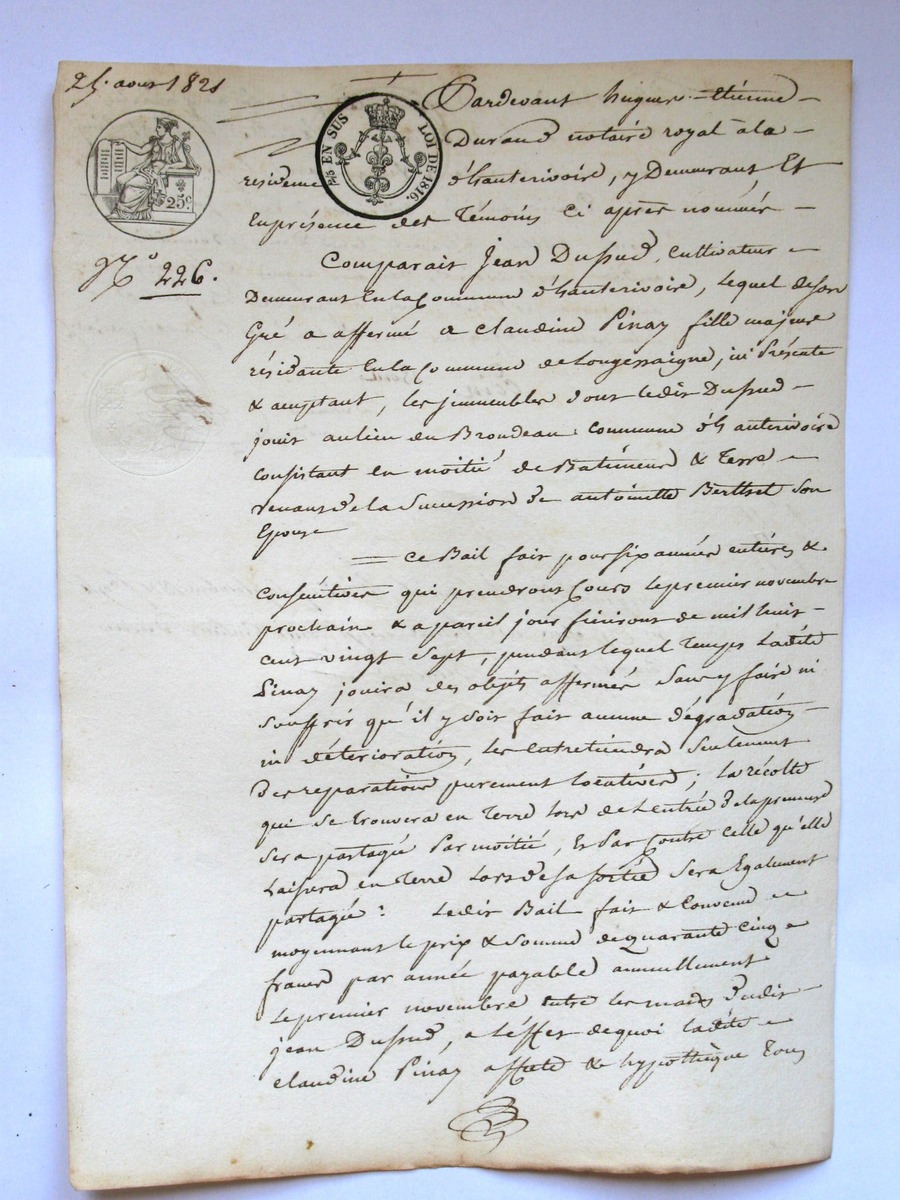 25. aout 1821
25c.
2/5 EN SUS LOI DE 1816.
No 226.
Pardevant hugues-Etienne
Durand notaire royal à la
résidence d'hauterivoire, y Demeurant Et
En présence des Témoins ci après nommés
Comparait Jean Dussud, cultivateur
Demeurant En la Commune d'hauterivoire, lequel de son
Gré a affermé a Claudine Pinay fille majeure
résidante En la Commune de Longessaigne, ici Présente
& aceptant, les jmmeubles dont ledit Dussud
jouit au lieu du Brondeau commune d'hauterivoire
Consistant en moitié de Batiment & Terre
venant de la Sucession de antoinette Berthet Son
Epouse
Ce Bail fait pour six années entières &
Consécutives qui prendront Cours le premier novembre
prochain & a pareil jour finiront de mil huit
cent vingt Sept, pendant lequel Temps Ladite
Pinay jouira des objets affermés Sans y faire ni
Souffrir qu'il y soit fait aucune dégradation
ni détérioration, les entretiendra Seulement
Des reparations purement Locatives; La récolte
qui se trouvera en Terre Lors de L'entrée de la preneuse
Sera partagée Par moitié, Et Par Contre celle qu'elle
Laissera en Terre Lors de sa sortie Sera Egalement
partagée: Ledit Bail fait & Convenu
moyennant le prix & Somme de quarante cinq
francs par année payable annuellement
Le premier novembre entre les mains dudit
jean Dussud, a L'éffet de quoi ladite
Claudine Pinay affecte & hypothèque Tous